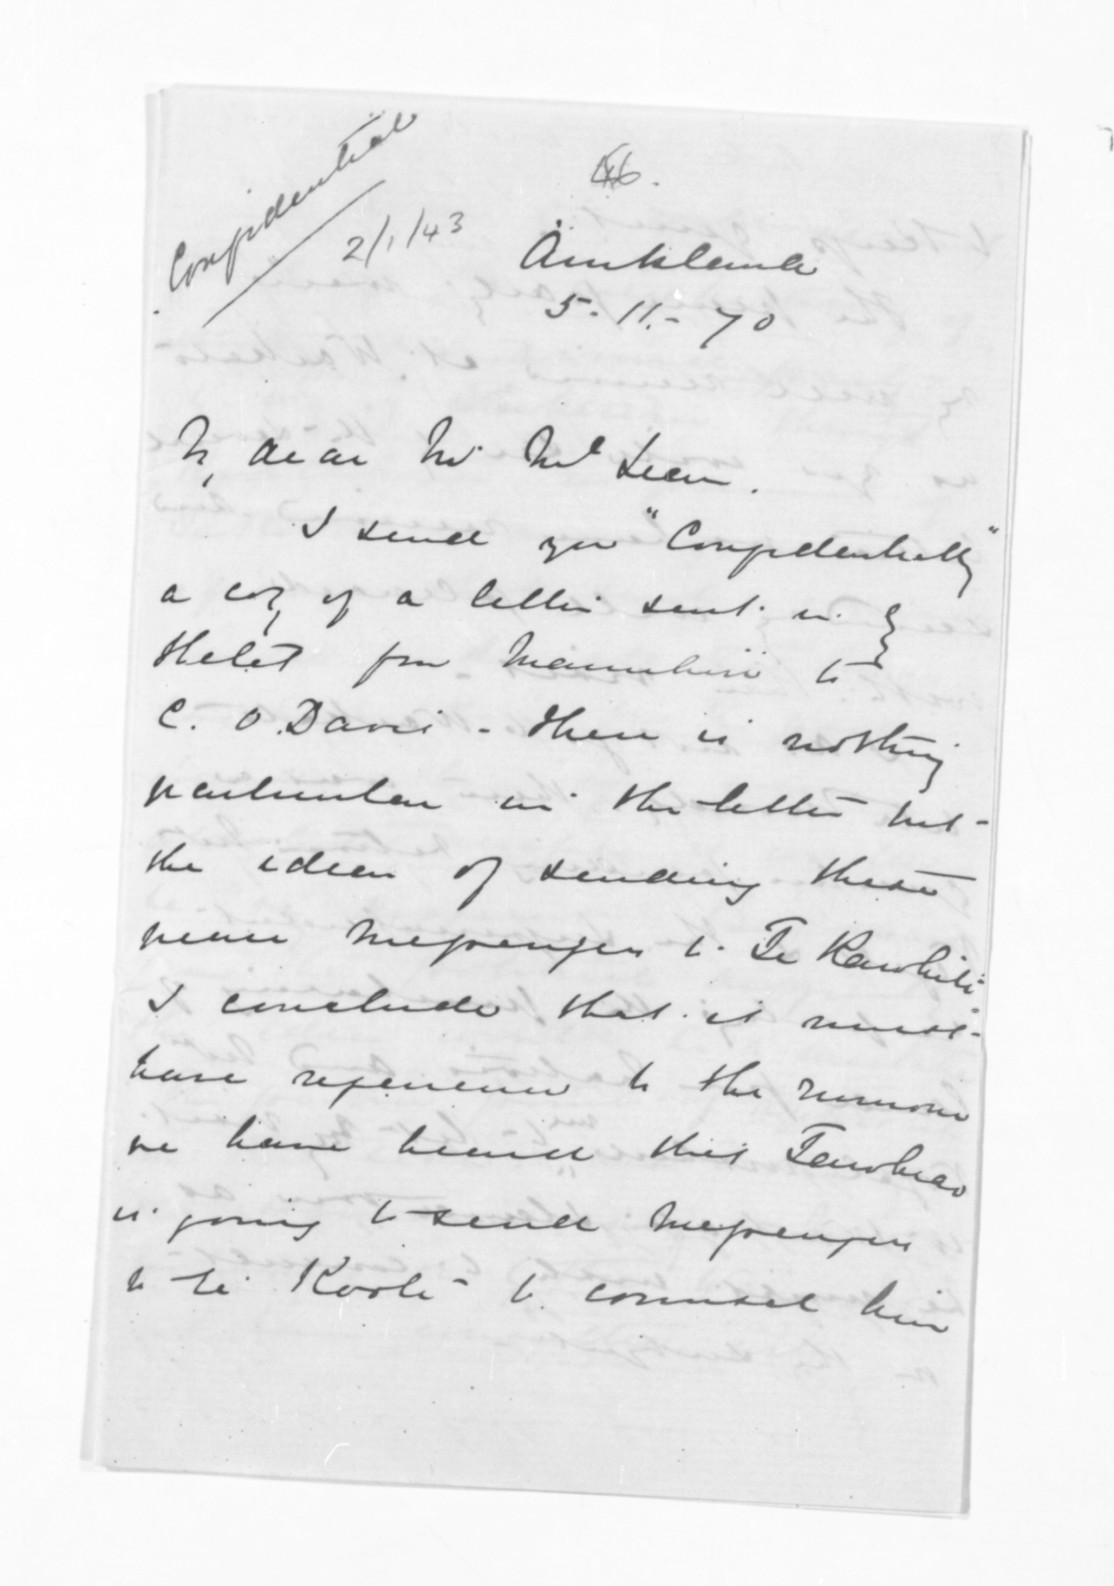 Confidential
46.
2/1/43
Auckland
5. 11. - 70
My dear Mr McLean.
I send you "Confidentially"
a copy of a letter sent in by
from Manuhiri to
C. O. Davis - there is nothing
particular in the letter but -
the idea of sending these
peace messengers to Te Rawhiti
I conclude that it must -
have reference to the rumour
we have heard that Tawhiao
is going to send messengers
to Te Kooti - to counsel him